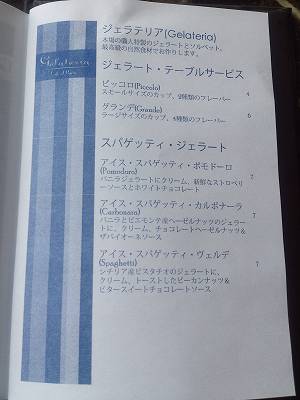 Gelateria
ジェラテリア(Gelateria)
本場の職人特製のジェラートとソルベット。
最高級の自然食材でお作りします。
ジェラート・テーブルサービス
ピッコロ(Piccolo) 4
スモールサイズのカップ、2種類のフレーバー
グランデ(Grande) 6
ラージサイズのカップ、4種類のフレーバー
スパゲッティ・ジェラート
アイス・スパゲッティ・ポモドーロ
(Pomodoro) 7
バニラジェラートにクリーム、新鮮なストロベリ
ーソースとホワイトチョコレート
アイス・スパゲッティ・カルボナーラ
(Carbonara) 7
バニラとピエモンテ産ヘーゼルナッツのジェラー
トに、クリーム、チョコレートヘーゼルナッツ&
ザバイオーネソース
アイス・スパゲッティ・ヴェルデ
(Spaghetti) 7
シチリア産ピスタチオのジェラートに、
クリーム、トーストしたピーカンナッツ&
ビタースイートチョコレートソース